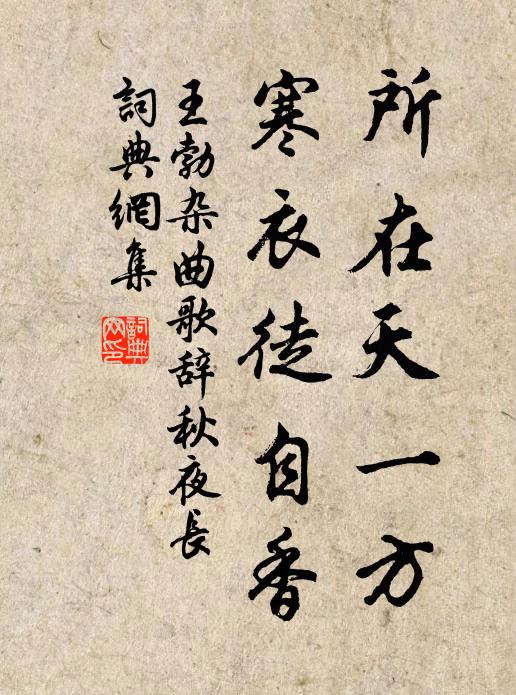 所在天一方
寒衣徒自香
王勃杂曲歌辞秋夜長
詞典網集
詞典
网印